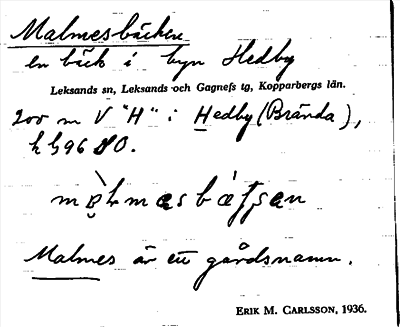 Malmesbäcken
en bäck i byn Hedby
Leksands sn, Leksands och Gagnefs tg, Kopparbergs län.
200 m V "H" i Hedby (Brända),
Malmes är ett gårdsnamn.
ERIK M. CARLSSON, 1936.